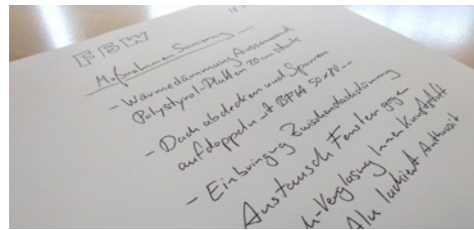 FBW
Maßnahmen Sanierung
- Wärmedämmung Aussenwand
Polystyrol-Platten 20cm stark
- Dach abdecken und Sparren
aufdoppeln mit BFH 50×80
- Einbringung Zwischendachdämmung
Austausch Fenster gegen
-Verglasung Innen Kunststoff
Alu lackiert Anthrazit